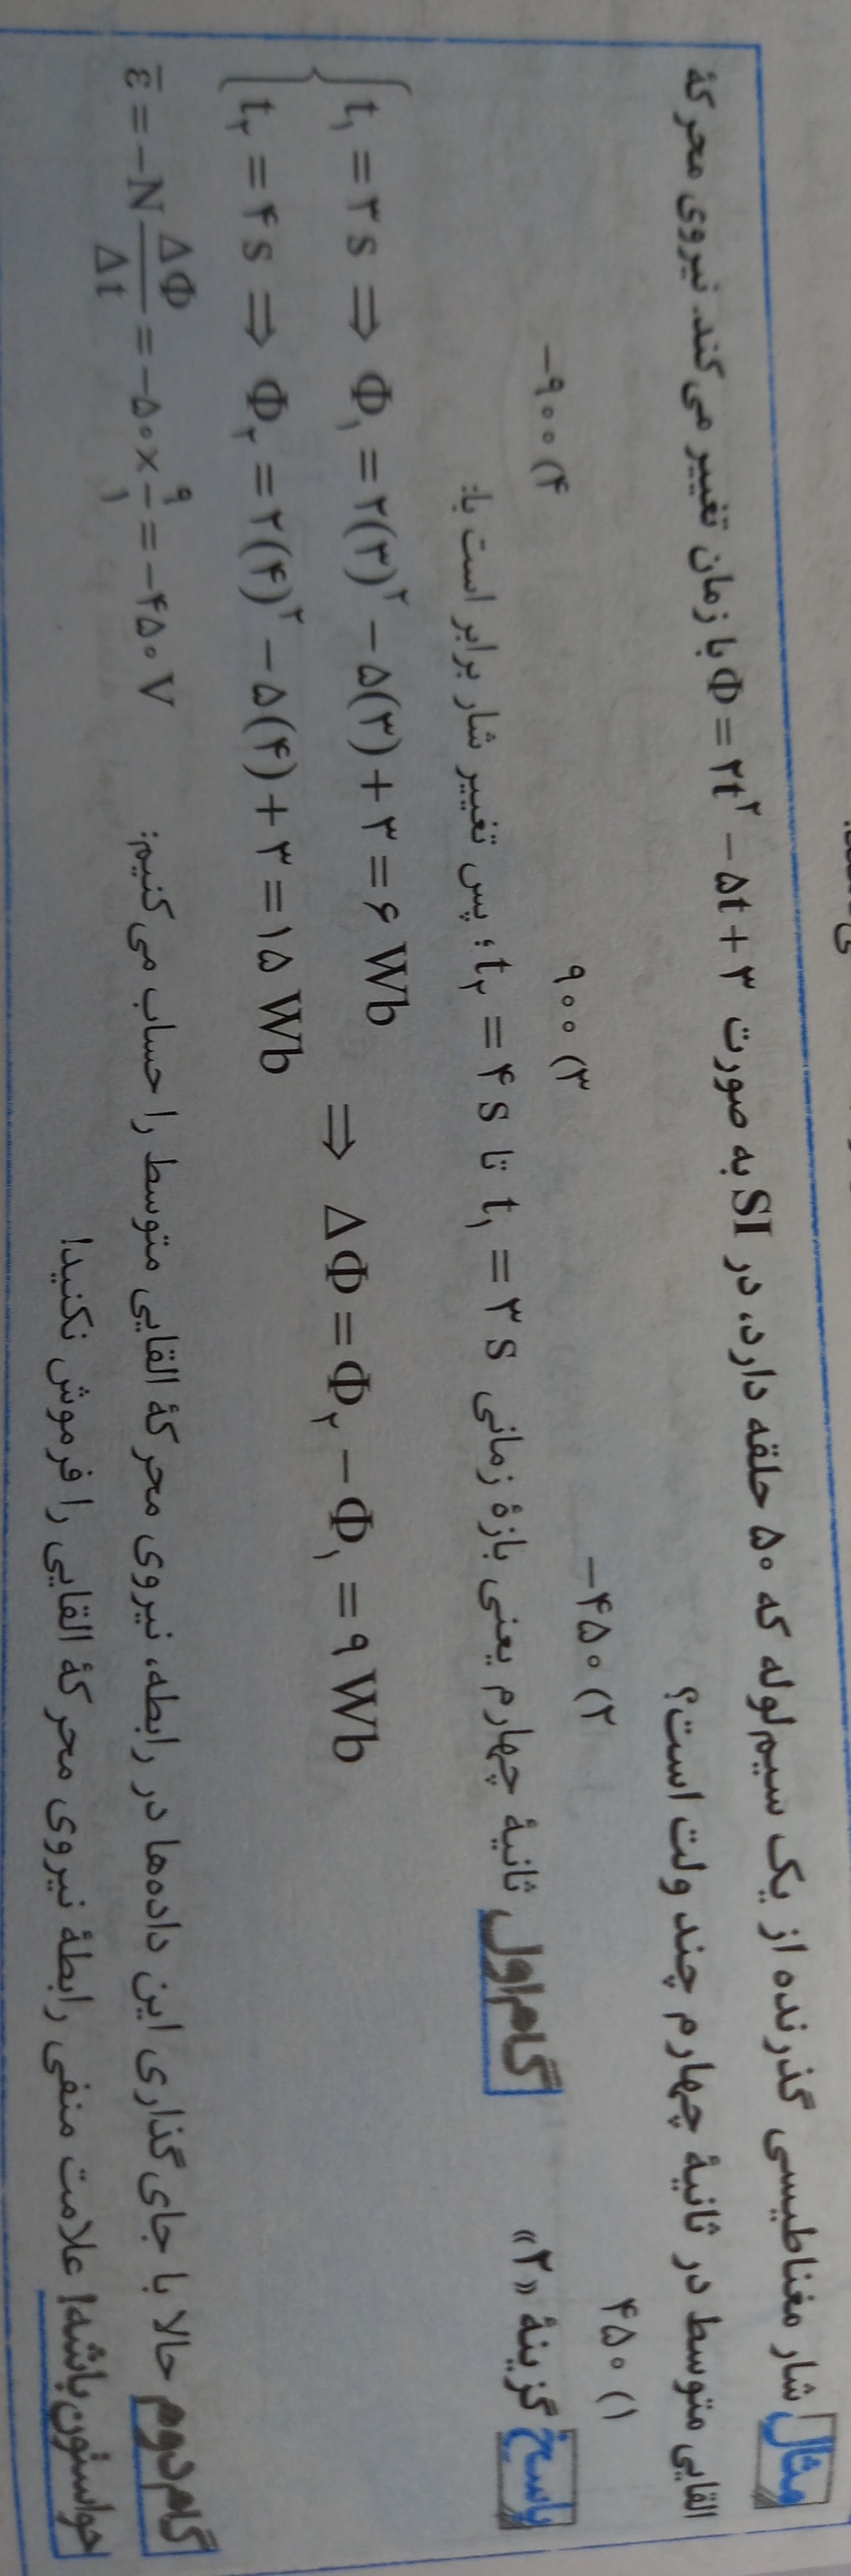 مثال شار مغناطیسی گذرنده از یک سیم‌لوله که ۵۰ حلقه دارد، در SI به صورت Φ = ۲t² − ۵t + ۳ با زمان تغییر می‌کند. نیروی محرکهٔ
القایی متوسط در ثانیهٔ چهارم چند ولت است؟
۱) ۴۵۰ ۲) −۴۵۰ ۳) ۹۰۰ ۴) −۹۰۰
پاسخ گزینهٔ «۲» گام اول ثانیهٔ چهارم یعنی بازهٔ زمانی t₁ = ۳ s تا t₂ = ۴ s؛ پس تغییر شار برابر است با:
t₁ = ۳ s ⇒ Φ₁ = ۲(۳)² − ۵(۳) + ۳ = ۶ Wb
t₂ = ۴ s ⇒ Φ₂ = ۲(۴)² − ۵(۴) + ۳ = ۱۵ Wb
⇒ ΔΦ = Φ₂ − Φ₁ = ۹ Wb
گام دوم حالا با جای‌گذاری این داده‌ها در رابطه، نیروی محرکهٔ القایی متوسط را حساب می‌کنیم: ε̄ = −N ΔΦ/Δt = −۵۰ × ۹/۱ = −۴۵۰ V
حواستون باشه! علامت منفی رابطهٔ نیروی محرکهٔ القایی را فرموش نکنید!